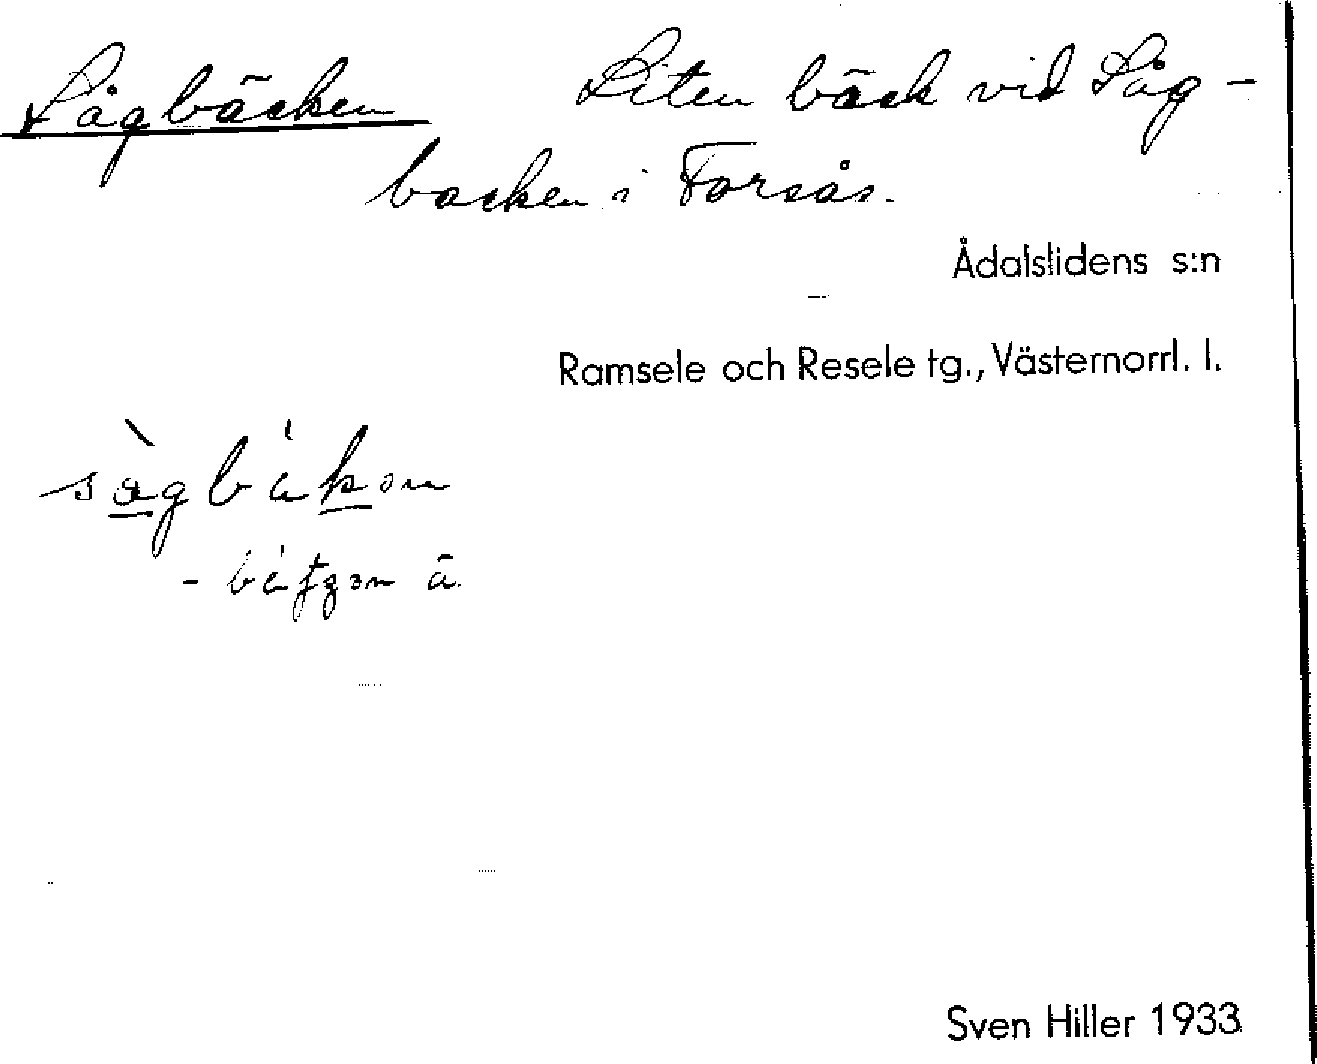 Sågbäcken Liten bäck vid Såg-
backen i Forsås.
Ådalslidens s:n
Ramsele och Resele tg., Västernorrl. l.
Sven Hiller 1933